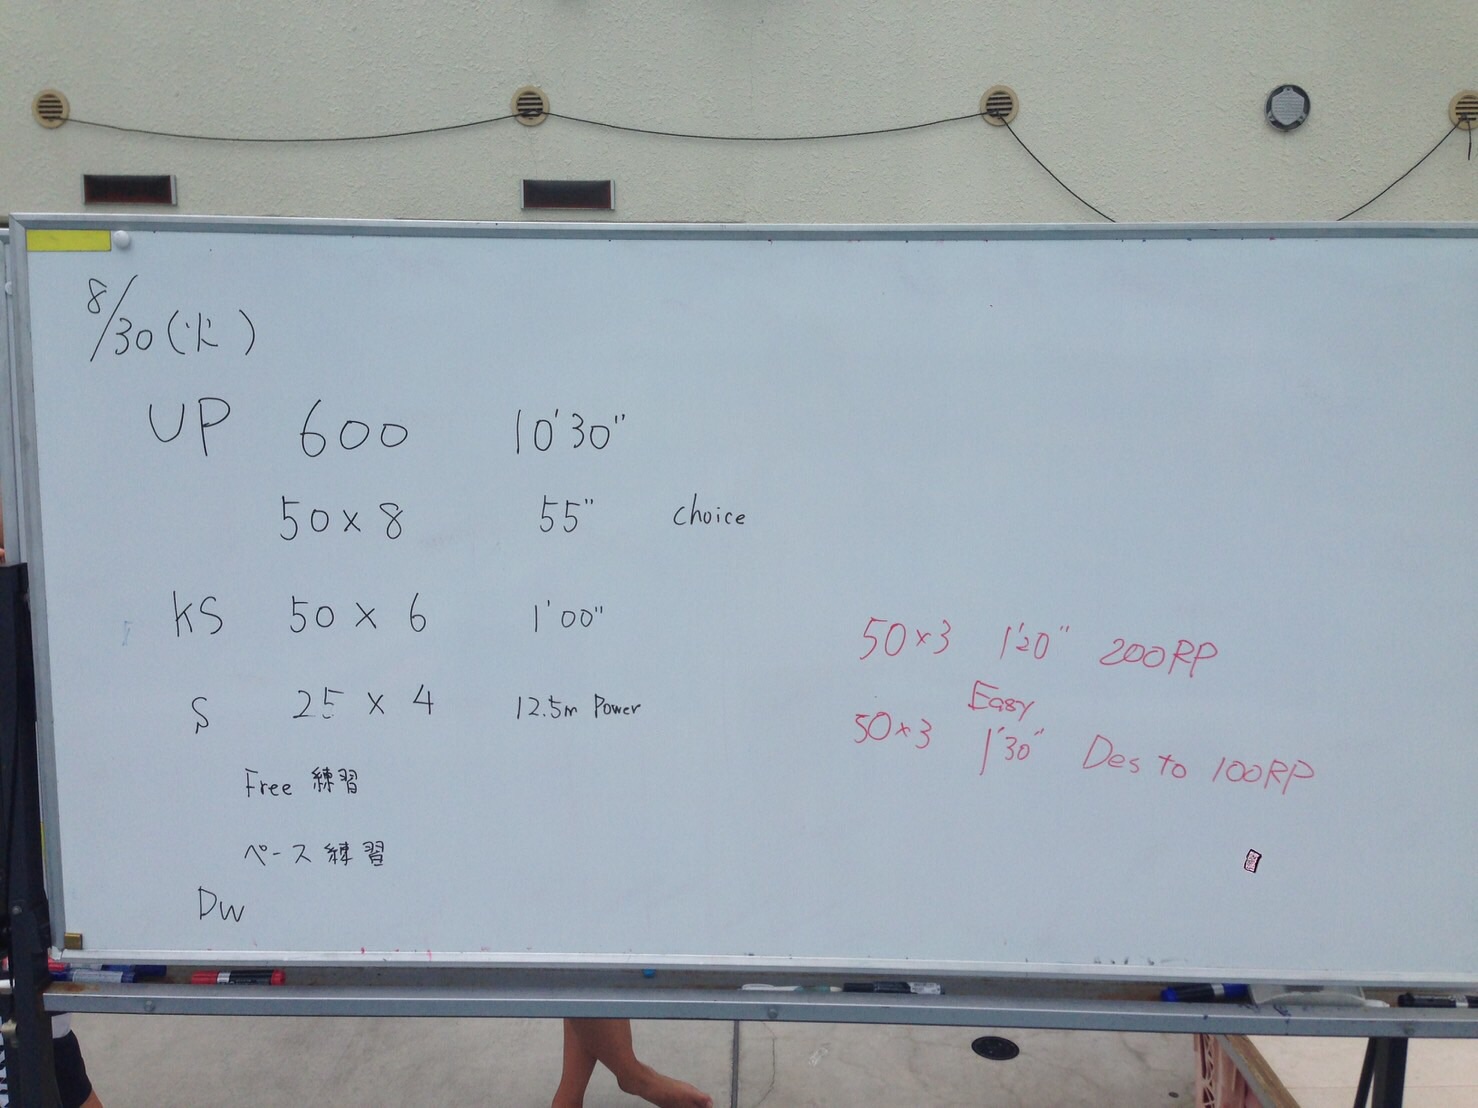 8/30(火)
UP 600 10'30"
50×8 55" choice
KS 50×6 1'00"
S 25×4 12.5m Power
Free 練習
ペース練習
DW
50×3 1'20" 200RP
Easy
50×3 1'30" Des to 100RP